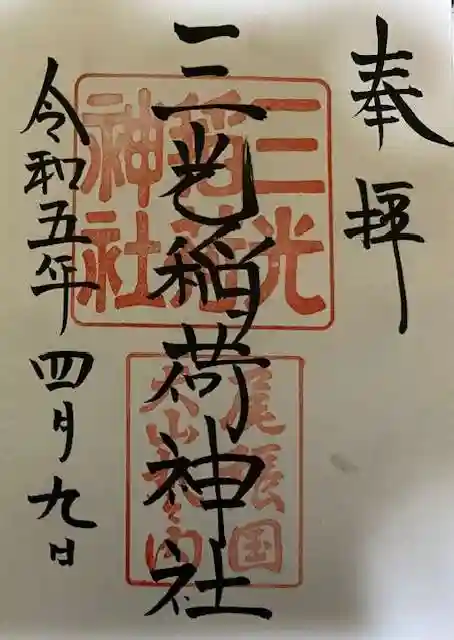 奉拝
三光稲荷神社
三光
稲荷
神社
尾張国
犬山
令和五年四月九日